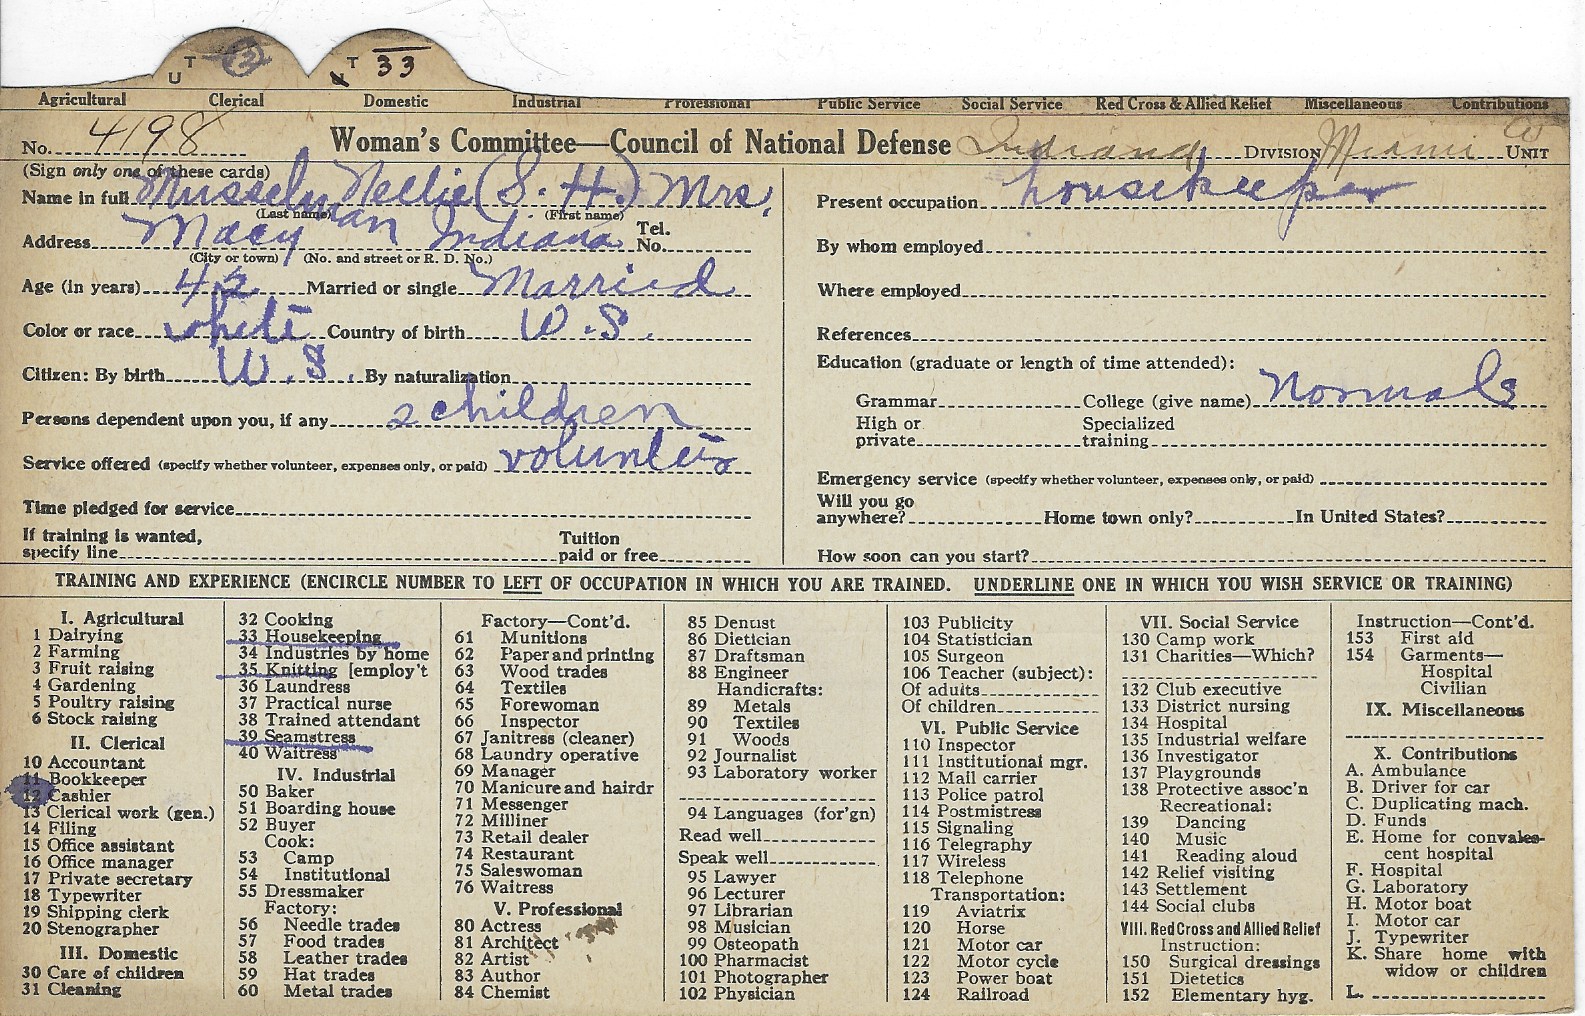 U T 12 T 33
Agricultural Clerical Domestic Industrial Professional Public Service Social Service Red Cross & Allied Relief Miscellaneous Contributions
No. 4198 Woman's Committee—Council of National Defense Indiana DIVISION Miami Co UNIT
(Sign only one of these cards)
Name in full Musselman Nellie (S. H.) Mrs.
(Last name) (First name)
Address Macy Indiana Tel. No.
(City or town) (No. and street or R. D. No.)
Age (in years) 42 Married or single Married
Color or race white Country of birth U.S.
Citizen: By birth U.S. By naturalization
Persons dependent upon you, if any 2 children
Service offered (specify whether volunteer, expenses only, or paid) volunteer
Time pledged for service
If training is wanted,
specify line
Tuition
paid or free
Present occupation housekeeper
By whom employed
Where employed
References
Education (graduate or length of time attended):
Grammar College (give name) Normals
High or
private
Specialized
training
Emergency service (specify whether volunteer, expenses only, or paid)
Will you go
anywhere? Home town only? In United States?
How soon can you start?
TRAINING AND EXPERIENCE (ENCIRCLE NUMBER TO LEFT OF OCCUPATION IN WHICH YOU ARE TRAINED. UNDERLINE ONE IN WHICH YOU WISH SERVICE OR TRAINING)
I. Agricultural
1 Dairying
2 Farming
3 Fruit raising
4 Gardening
5 Poultry raising
6 Stock raising
II. Clerical
10 Accountant
11 Bookkeeper
12 Cashier
13 Clerical work (gen.)
14 Filing
15 Office assistant
16 Office manager
17 Private secretary
18 Typewriter
19 Shipping clerk
20 Stenographer
III. Domestic
30 Care of children
31 Cleaning
32 Cooking
33 Housekeeping
34 Industries by home
35 Knitting [employ't
36 Laundress
37 Practical nurse
38 Trained attendant
39 Seamstress
40 Waitress
IV. Industrial
50 Baker
51 Boarding house
52 Buyer
Cook:
53 Camp
54 Institutional
55 Dressmaker
Factory:
56 Needle trades
57 Food trades
58 Leather trades
59 Hat trades
60 Metal trades
Factory—Cont'd.
61 Munitions
62 Paper and printing
63 Wood trades
64 Textiles
65 Forewoman
66 Inspector
67 Janitress (cleaner)
68 Laundry operative
69 Manager
70 Manicure and hairdr
71 Messenger
72 Milliner
73 Retail dealer
74 Restaurant
75 Saleswoman
76 Waitress
V. Professional
80 Actress
81 Architect
82 Artist
83 Author
84 Chemist
85 Dentist
86 Dietician
87 Draftsman
88 Engineer
Handicrafts:
89 Metals
90 Textiles
91 Woods
92 Journalist
93 Laboratory worker
94 Languages (for'gn)
Read well
Speak well
95 Lawyer
96 Lecturer
97 Librarian
98 Musician
99 Osteopath
100 Pharmacist
101 Photographer
102 Physician
103 Publicity
104 Statistician
105 Surgeon
106 Teacher (subject):
Of adults
Of children
VI. Public Service
110 Inspector
111 Institutional mgr.
112 Mail carrier
113 Police patrol
114 Postmistress
115 Signaling
116 Telegraphy
117 Wireless
118 Telephone
Transportation:
119 Aviatrix
120 Horse
121 Motor car
122 Motor cycle
123 Power boat
124 Railroad
VII. Social Service
130 Camp work
131 Charities—Which?
132 Club executive
133 District nursing
134 Hospital
135 Industrial welfare
136 Investigator
137 Playgrounds
138 Protective assoc'n
Recreational:
139 Dancing
140 Music
141 Reading aloud
142 Relief visiting
143 Settlement
144 Social clubs
VIII. Red Cross and Allied Relief
Instruction:
150 Surgical dressings
151 Dietetics
152 Elementary hyg.
Instruction—Cont'd.
153 First aid
154 Garments—
Hospital
Civilian
IX. Miscellaneous
X. Contributions
A. Ambulance
B. Driver for car
C. Duplicating mach.
D. Funds
E. Home for convales-
cent hospital
F. Hospital
G. Laboratory
H. Motor boat
I. Motor car
J. Typewriter
K. Share home with
widow or children
L.